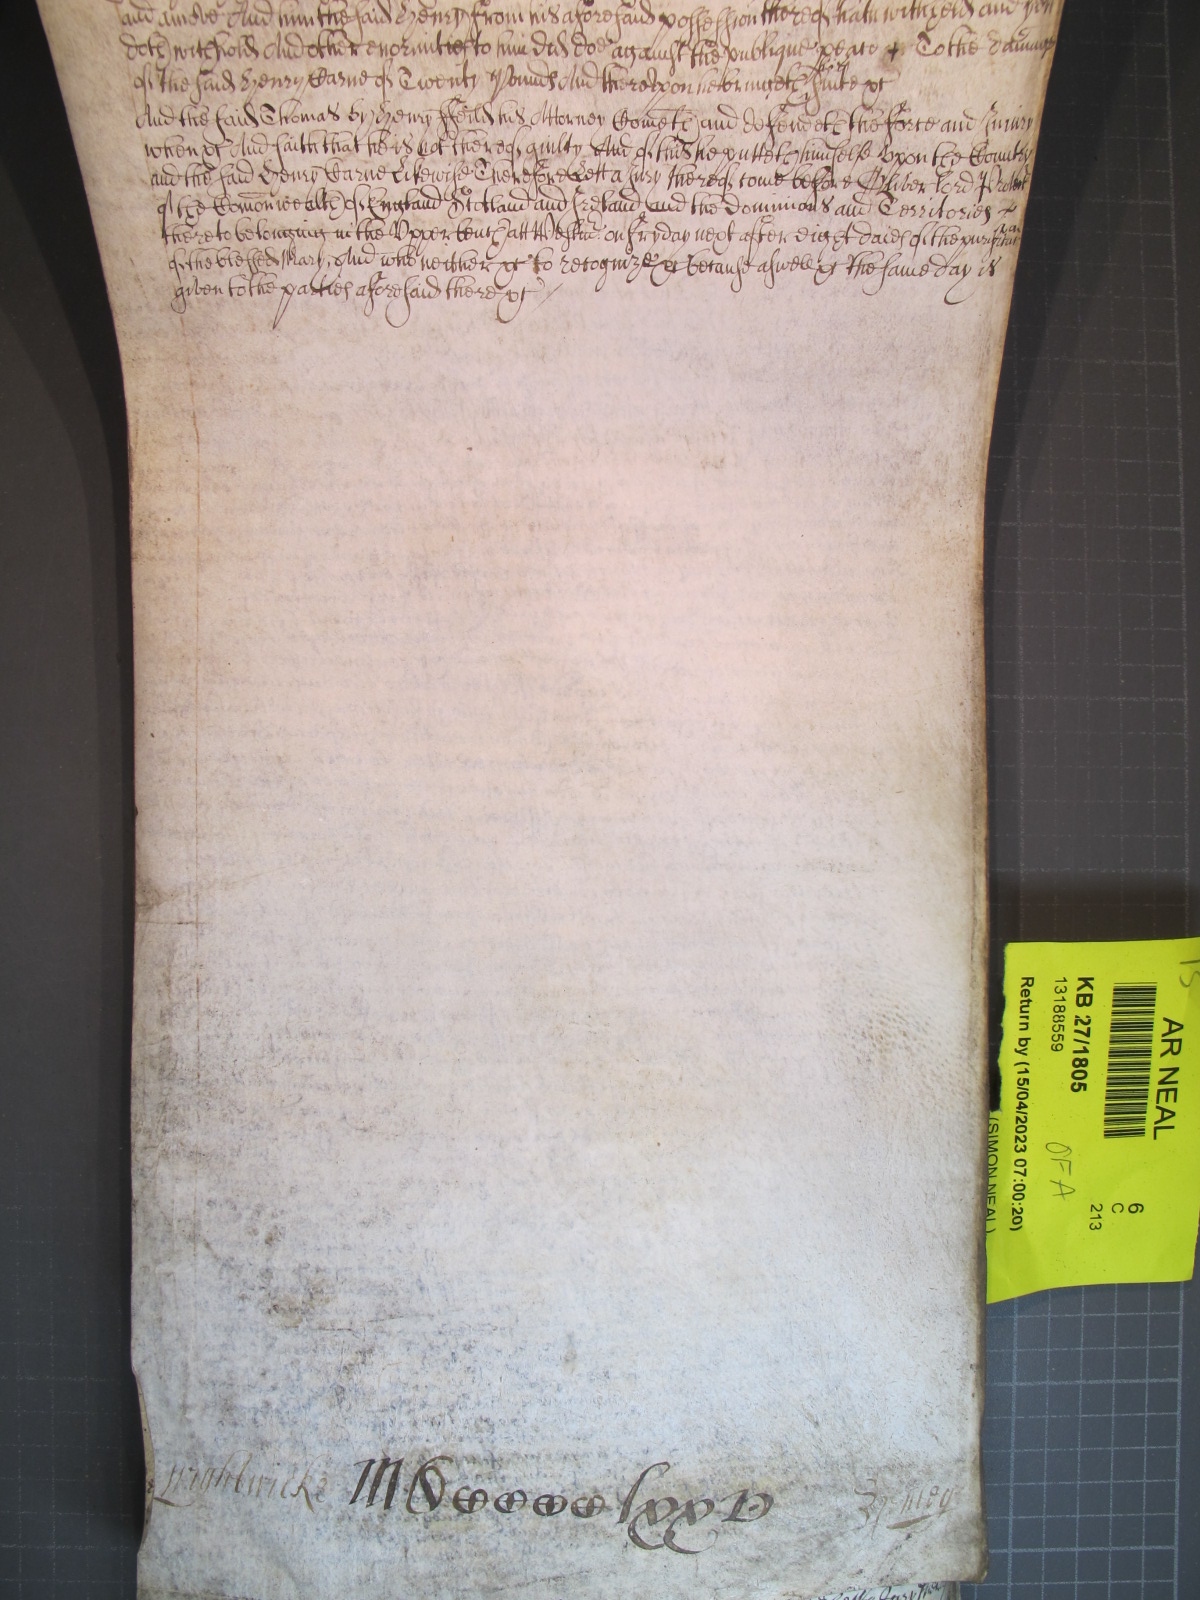 and amove And him the said Henry from his aforesaid possession thereof hath withheld and yett
doth withhold And other enormities to him did doe against the publique peace & To the damage
of the said Henry Carne of Twenty Pounds And thereupon he bringeth his suite &c
And the said Thomas by Henry ffeild his Attorney Cometh and defendeth the force and Iniury
when &c And saith that he is not thereof guilty And of this he putteth himselfe Upon the Country
and the said Henry Carne Likewise Therefore Lett a Jury thereof come before Oliver Lord Protector
of the Comonwealth of England Scotland and Ireland and the dominions and Territories
thereto belonging in the Upper bench att Westm̃ on Fryday next after eight daies of the purification
of the blessed Mary, And who neither &c to recognize &c because aswell &c the same day is
given to the parties aforesaid there &c
Wightwicke
lxxv
AR NEAL
KB 27/1805
13188559
Return by (15/04/2023 07:00:20)
(SIMON NEAL)
OFA
6
C
213
15